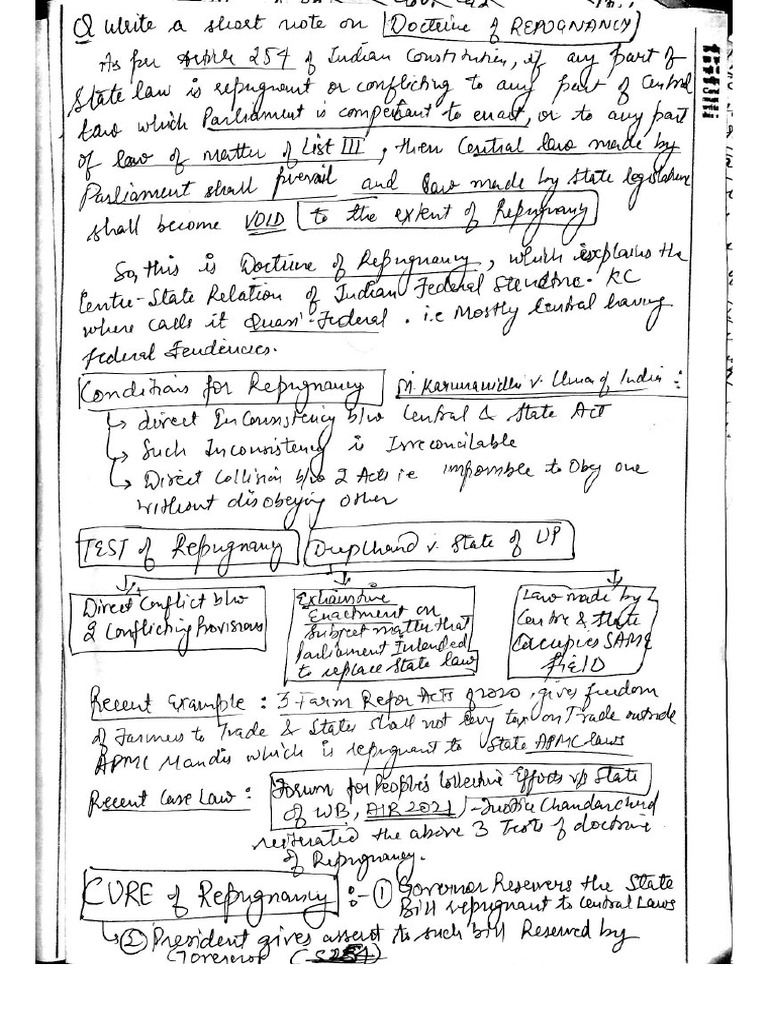 Q Write a short note on Doctrine of REPUGNANCY
As per Article 254 of Indian Constitution, if any part of
State law is repugnant or conflicting to any part of Central
Law which Parliament is competent to enact, or to any part
of law of matter of List III, then Central law made by
Parliament shall prevail and law made by State legislature
shall become VOID to the extent of Repugnancy
So, this is Doctrine of Repugnancy, which explains the
Centre-State Relation of Indian Federal Structure. KC
where calls it Quasi-Federal. i.e Mostly Central having
federal Tendencies.
Conditions for Repugnancy M. Karunanidhi v. Union of India :
↳ direct Inconsistency b/w Central & State Act
↳ Such Inconsistency is Irreconcilable
↳ Direct Collision b/w 2 Acts i.e impossible to Obey one
without disobeying other
TEST of Repugnancy Deepchand v. State of UP
Direct Conflict b/w
2 Conflicting Provisions
Exhaustive
Enactment on
Subject matter that
Parliament Intended
to replace State law
Law made by
Centre & State
Occupies SAME
FIELD
Recent Example : 3 Farm Refor Acts of 2020, gives freedom
of Farmers to Trade & States shall not levy tax on Trade outside
APMC Mandis which is repugnant to State APMC laws
Recent Case Law : Forum for People's Collective Efforts v/s State
of WB, AIR 2021 - Justice Chandarchurd
reiterated the above 3 Tests of doctrine
of Repugnancy.
CURE of Repugnancy :- ① Governor Reservers the State
Bill repugnant to Central Laws
↳ ② President gives assent to such bill Reserved by
Governor